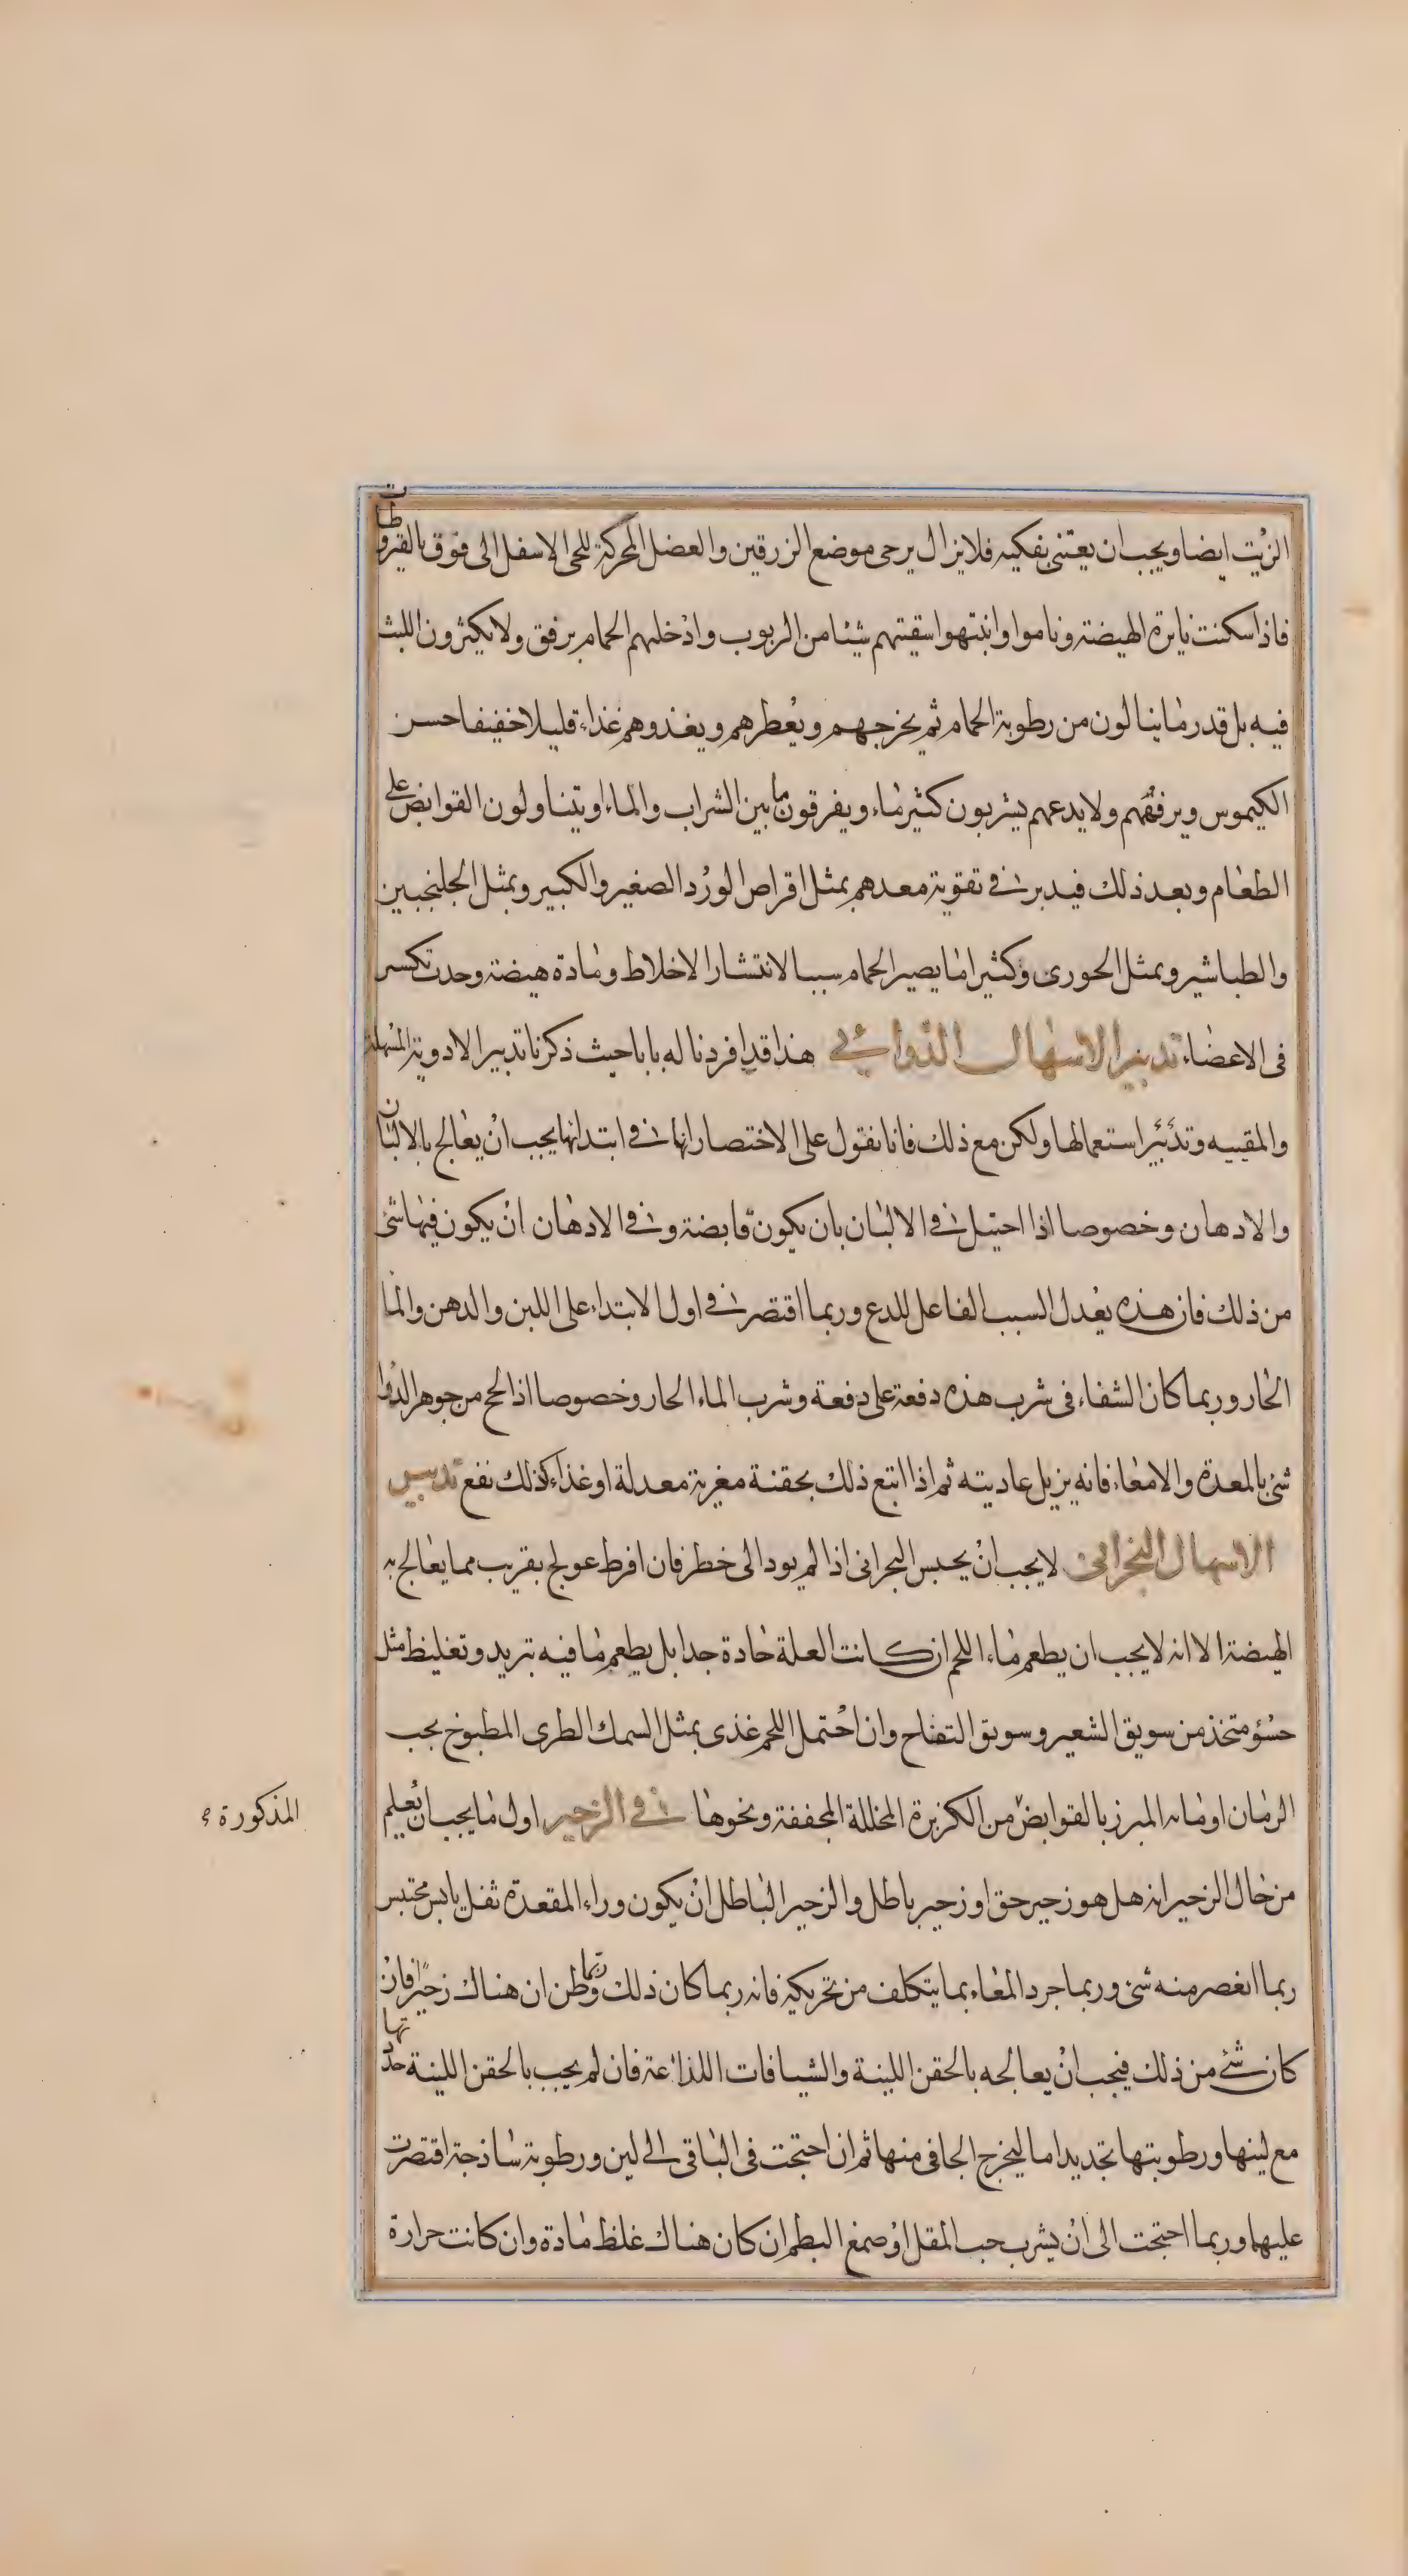 الزيت ايضا ويجب ان يعتنى بفكيه فلا يزال يرحى موضع الزرقين والعضل المحركة للحى الاسفل الى فوق بالقيروطات
فاذا سكنت نايرة الهيضة وناموا وانتبهوا سقيتهم شيئا من الربوب وادخلهم الحمام برفق ولا يكثرون اللبث
فيه بل قدر ما ينالون من رطوبة الحمام ثم يخرجهم ويعطرهم ويغذوهم غذاء قليلا خفيفا حسن
الكيموس ويرفههم ولا يدعهم يشربون كثير ماء ويفرقون ما بين الشراب والماء او يتناولون القوابض على
الطعام وبعد ذلك فيدبر في تقوية معدهم بمثل اقراص الورد الصغير والكبير وبمثل الجلنجبين
والطباشير وبمثل الحورى وكثيرا ما يصير الحمام سببا لانتشار الاخلاط ومادة هيضة وحدت تكسر
فى الاعضاء تدبير الاسهال الدوائي هذا قد افردنا له بابا حيث ذكرنا تدبير الادوية المسهلة
والمقييه وتدبير استعمالها ولكن مع ذلك فانا نقول على الاختصار انها في ابتدائها يجب ان يعالج بالالبان
والادهان وخصوصا اذا احتيل في الالبان بان يكون قابضة وفي الادهان ان يكون فيها شئ
من ذلك فان هذه يعدل السبب الفاعل للدع وربما اقتصر في اول الابتداء على اللبن والدهن والما
الحار وربما كان الشفاء فى شرب هذه دفعة على دفعة وشرب الماء الحار وخصوصا اذا لحج من جوهر الدوا
شئ بالمعدة والامعاء فانه يزيل عاديته ثم اذا اتبع ذلك بحقنة مغرية معدلة او غذاء كذلك نفع تدبير
الاسهال البحرانى لا يجب ان يحبس البحرانى اذا لم يود الى خطر فان افرط عولج بقريب مما يعالج به
الهيضة الا انه لا يجب ان يطعم ماء اللحم ان كانت العلة حادة جدا بل يطعم ما فيه تبريد وتغليظ مثل
حسؤ متخذ من سويق الشعير وسويق التفاح وان احتمل اللحم غذى بمثل السمك الطرى المطبوخ بحب
الرمان او مائه المبرز بالقوابض من الكزبرة المخللة المجففة ونحوها في الزحير اول ما يجب ان يعلم
المذكورة
من حال الزحير انه هل هو زحير حق او زحير باطل والزحير الباطل ان يكون وراء المقعدة ثفل يابس محتبس
ربما انعصر منه شئ وربما جرد المعاء بما يتكلف من تحريكه فانه ربما كان ذلك وربما ظن ان هناك زحيرا فان
كان شئ من ذلك فيجب ان يعالجه بالحقن اللينة والشيافات اللذاعة فان لم يجب بالحقن اللينة حدتها
مع لينها ورطوبتها تحديدا ما ليخرج الجافى منها ثم ان احتجت فى الباقى الى لين ورطوبة ساذجة اقتصرت
عليهما وربما احتجت الى ان يشرب حب المقل او صمغ البطم ان كان هناك غلظ مادة وان كانت حرارة